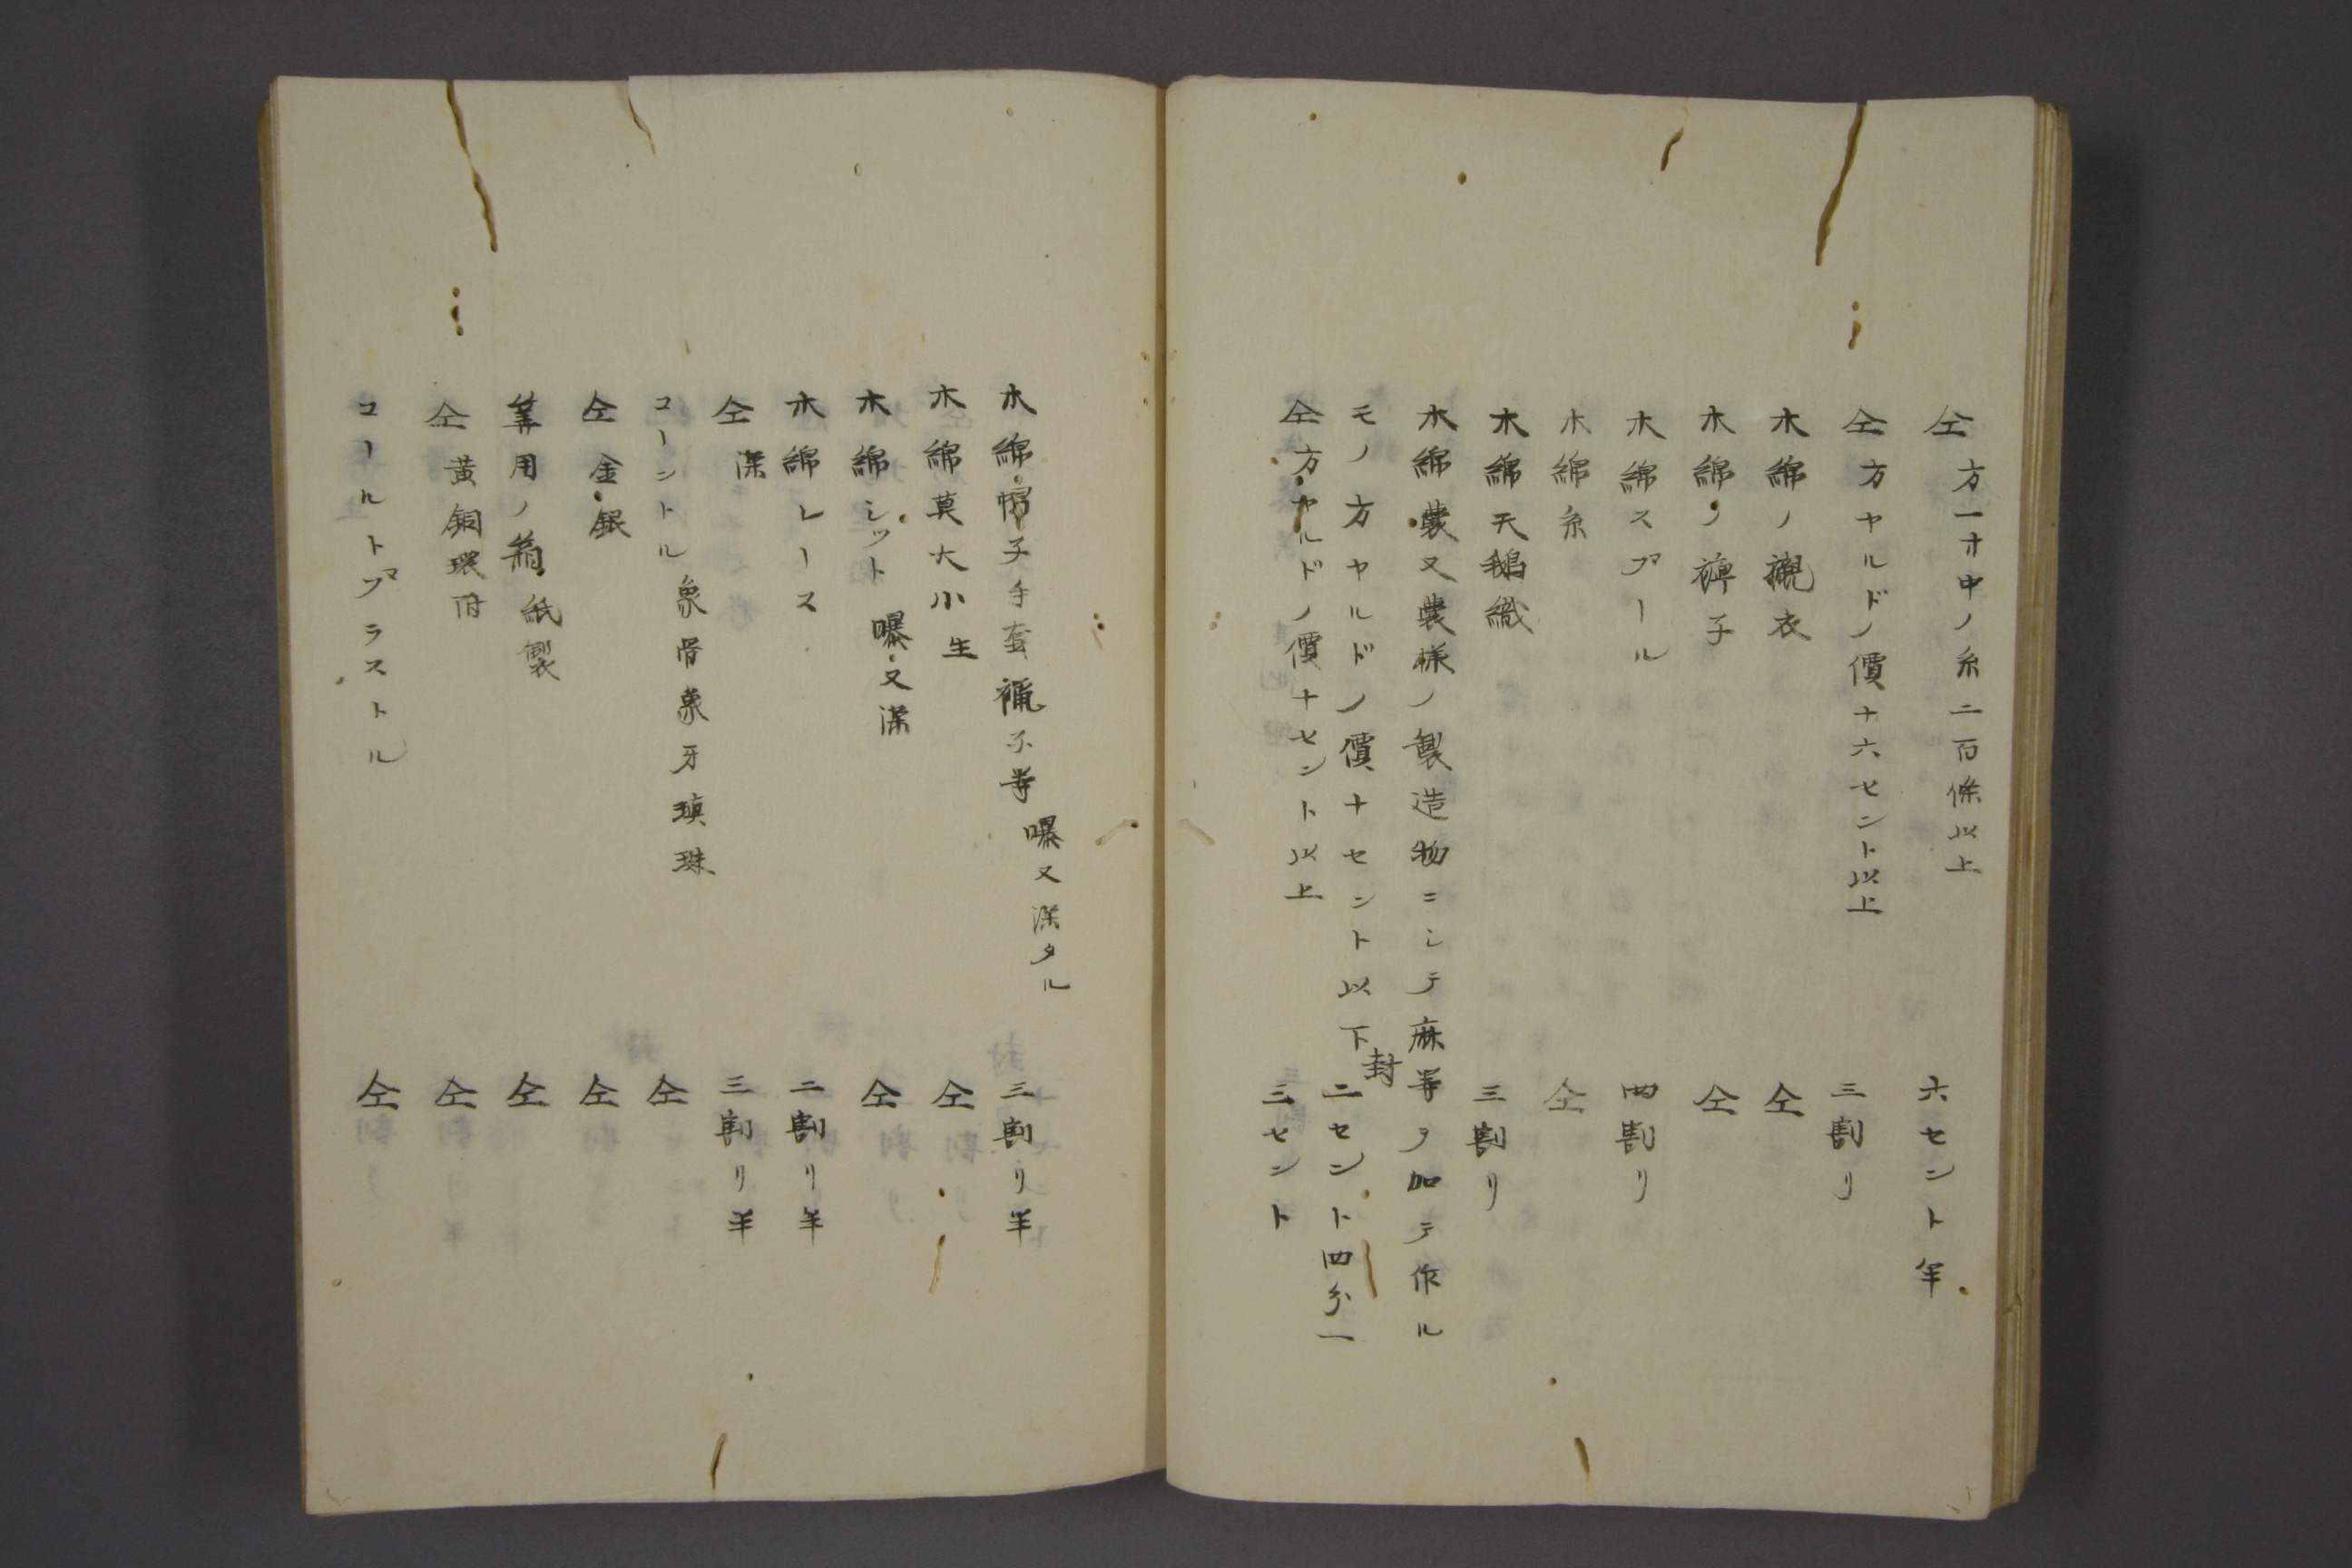 仝 方一寸中ノ糸二百條以上 六セント半
仝 方ヤルドノ價十六セント以上 三割リ
木綿ノ襯衣 仝
木綿ノ褌子 仝
木綿スプール 四割リ
木綿糸 仝
木綿天鵝織 三割リ
木綿囊又囊様ノ製造物ニシテ麻等ヲ加テ作ル
モノ方ヤルドノ價十セント以下 封二セント四分一
仝方ヤルドノ價十セント以上 三セント
木綿帽子手套 等 曝又染タル 三割リ半
木綿莫大小 生 仝
木綿シット 曝又染 仝
木綿レース 二割リ半
仝 染 三割リ半
コーントル 象骨象牙 珠 仝
仝 金銀 仝
 用ノ箱 紙製 仝
仝 黄銅環附 仝
コールトプラストル 仝